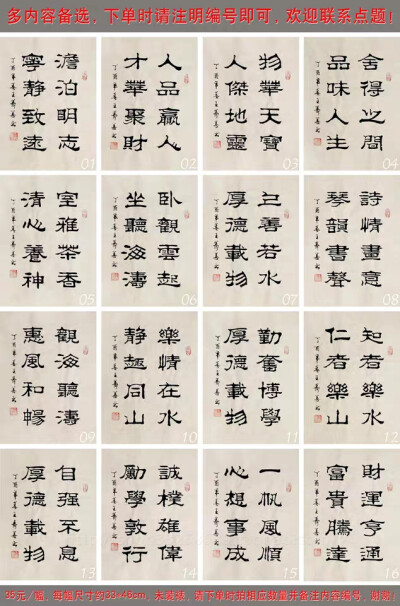 多内容备选，下单时请注明编号即可，欢迎联系点题！
澹泊明志
寧静致遠
01
人品贏人
才華聚財
02
物華天寶
人傑地靈
03
舍得之間
品味人生
04
室雅茶香
清心養神
05
卧觀雲起
坐聽海濤
06
上善若水
厚德載物
07
詩情畫意
琴韻書聲
08
觀海聽濤
惠風和暢
09
樂情在水
静趣同山
10
勤奮博學
厚德載物
11
知者樂水
仁者樂山
12
自强不息
厚德載物
13
誠樸雄偉
勵學敦行
14
一帆風順
心想事成
15
財運亨通
富貴騰達
16
35元/幅，每幅尺寸约33*46cm，未装裱，请下单时拍相应数量并备注内容编号，谢谢！